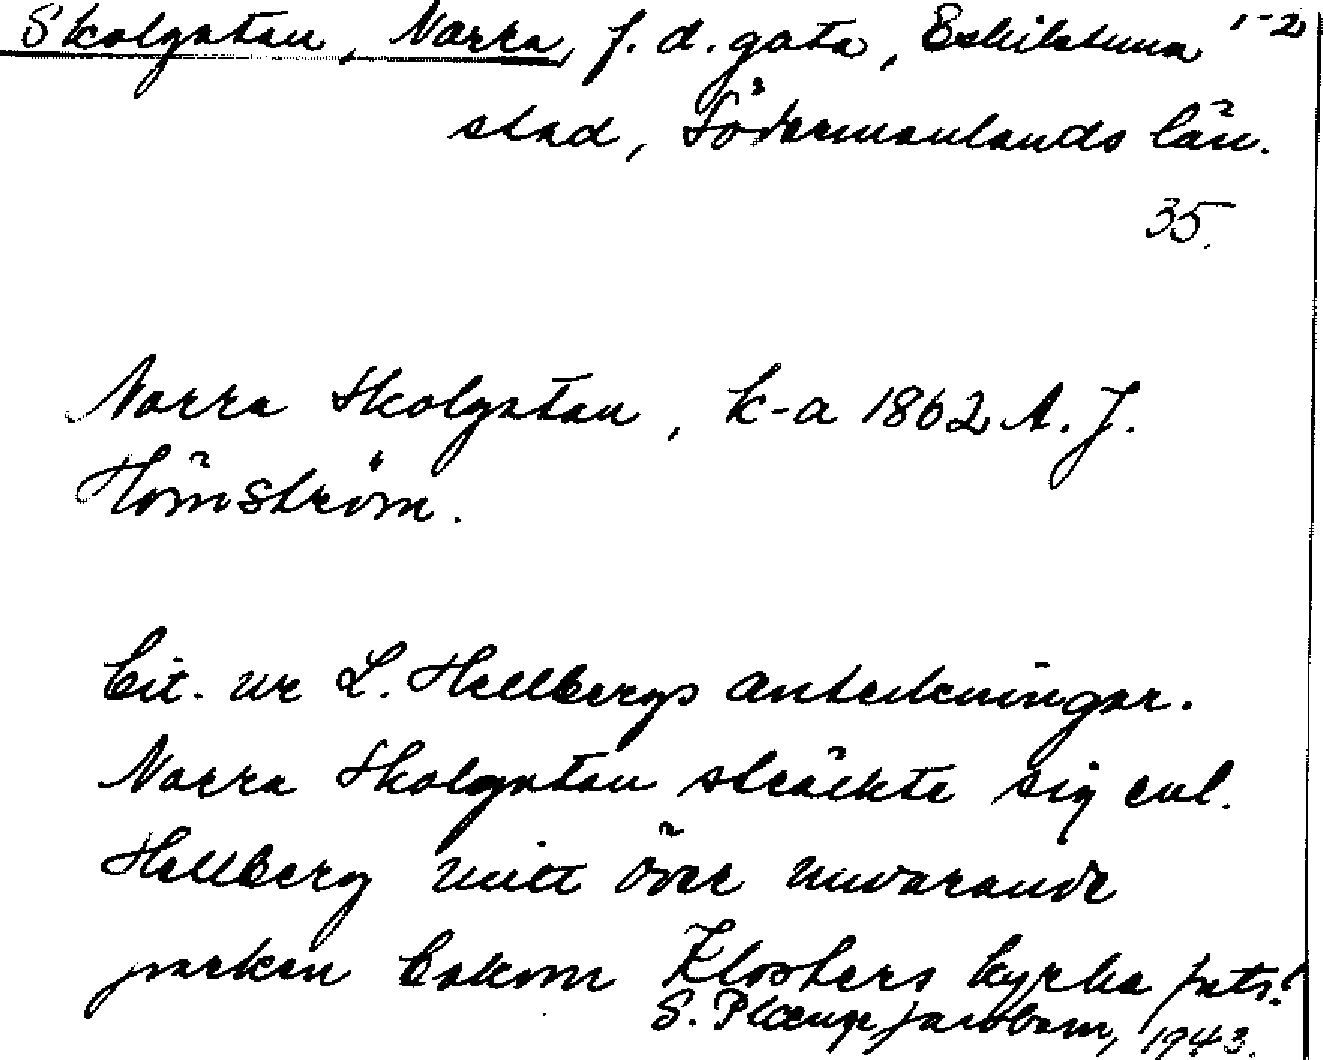 Skolgatan, Norra, f. d. gata, Eskilstuna 1-2
stad, Södermanlands län.
35.
Norra Skolgatan, k-a 1862 A. J.
Hörnström.
Cit. ur L. Hellbergs anteckningar.
Norra Skolgatan sträckte sig enl.
Hellberg mitt över nuvarande
parken bakom Klosters kyrka forts!
S. Jacobson, 1943.